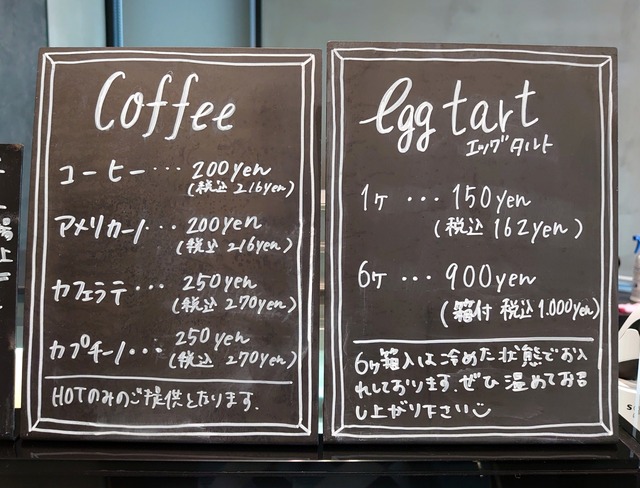 Coffee
コーヒー・・・200yen
(税込 216yen)
アメリカーノ・・・200yen
(税込 216yen)
カフェラテ・・・250yen
(税込 270yen)
カプチーノ・・・250yen
(税込 270yen)
HOTのみのご提供となります.
egg tart
エッグタルト
1ヶ・・・150yen
(税込 162yen)
6ヶ・・・900yen
(箱付 税込 1.000yen)
6ヶ箱入は冷めた状態でお入
れしております.ぜひ温めてお召
し上がり下さい